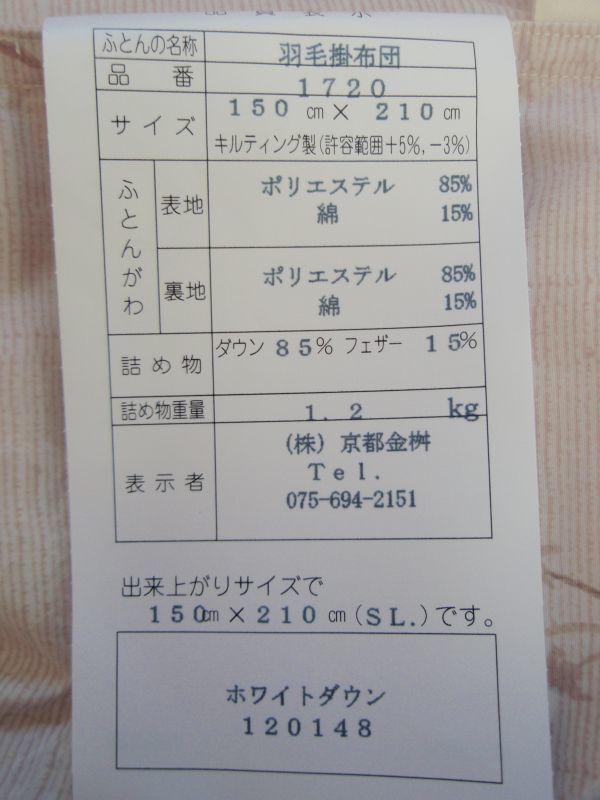 ふとんの名称 羽毛掛布団
品番 1720
サイズ 150㎝×210㎝
キルティング製(許容範囲+5%,-3%)
ふとんがわ 表地 ポリエステル 85%
綿 15%
裏地 ポリエステル 85%
綿 15%
詰め物 ダウン 85% フェザー 15%
詰め物重量 1.2 kg
表示者 (株)京都金桝
Tel.
075-694-2151
出来上がりサイズで
150㎝×210㎝(SL.)です。
ホワイトダウン
120148